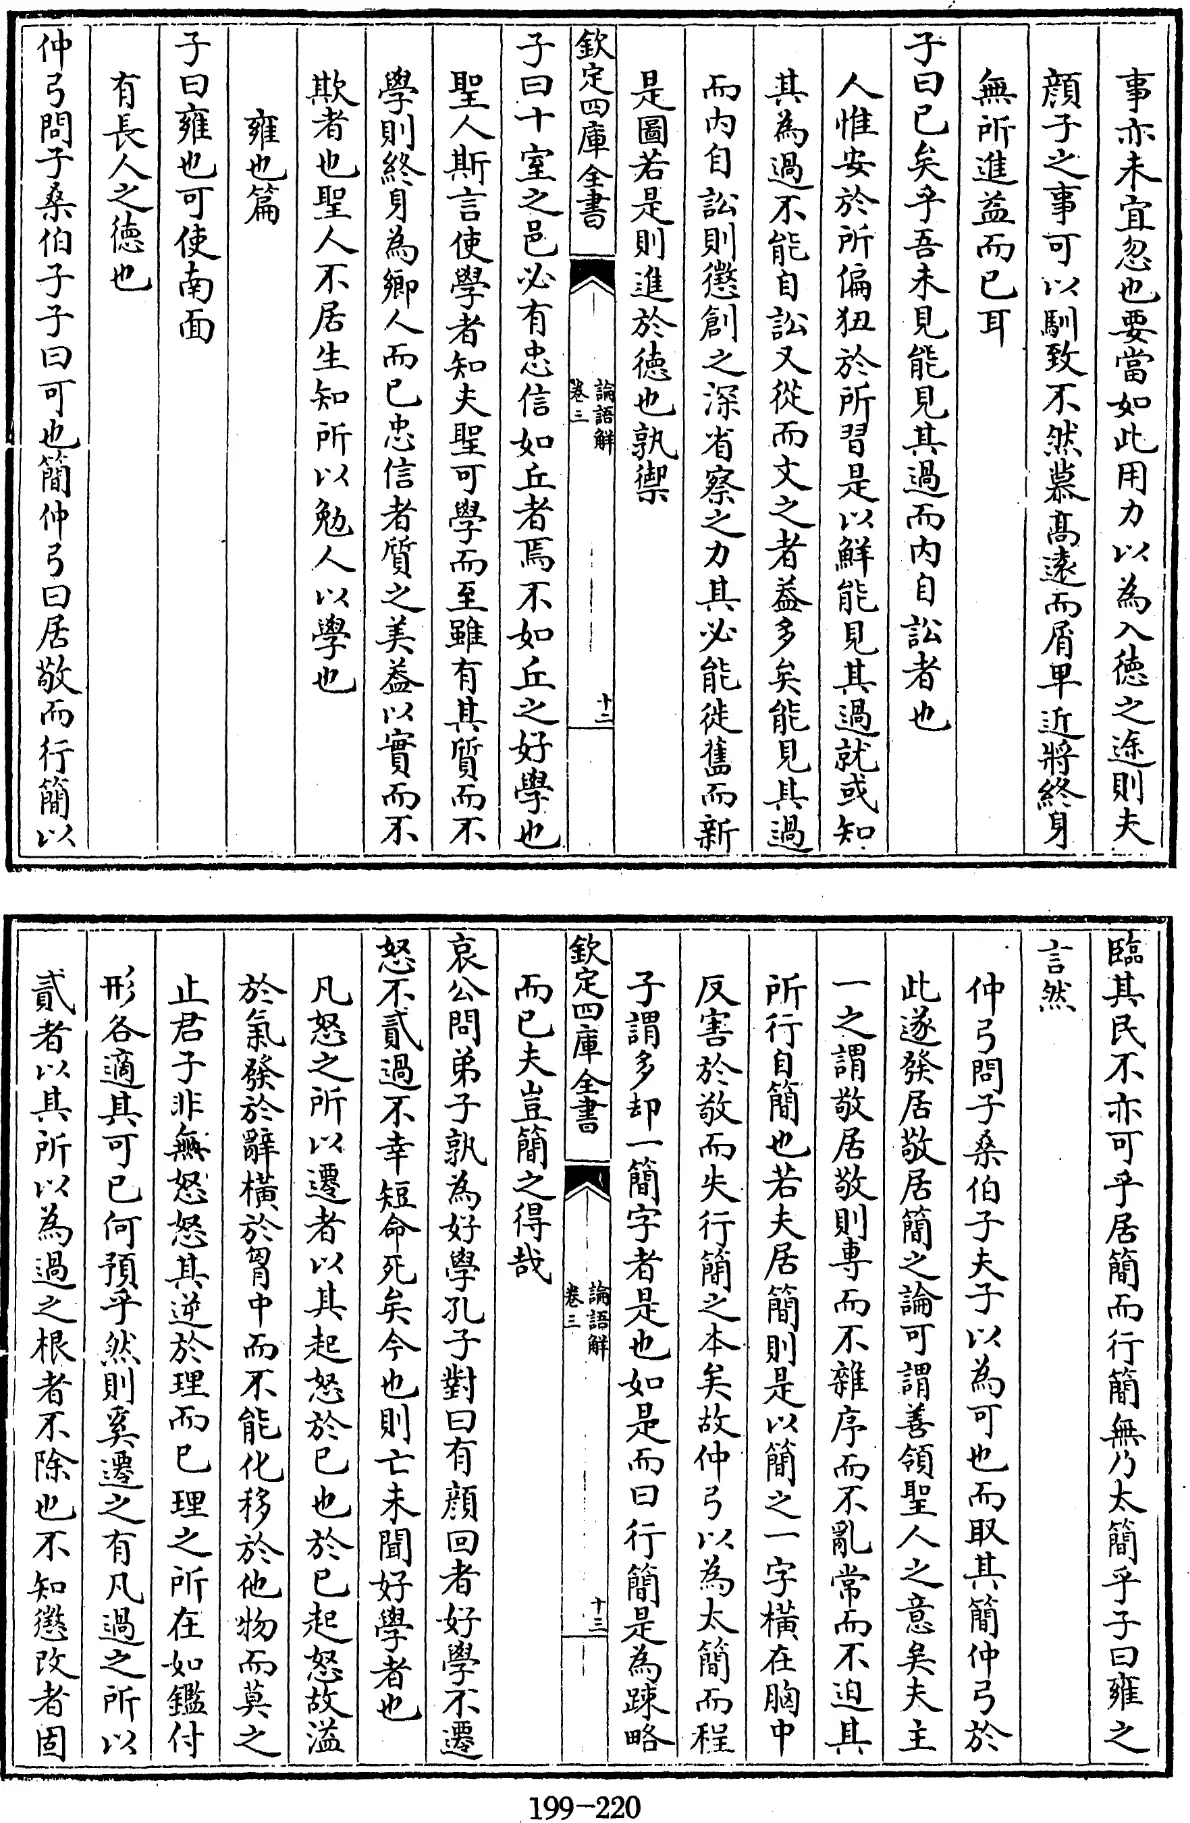 事亦未宜忽也要當如此用力以為入徳之途則夫
顔子之事可以馴致不然慕髙逺而屑卑近將終身
無所進益而已耳
子曰已矣乎吾未見能見其過而内自訟者也
人惟安於所偏狃於所習是以鮮能見其過就或知
其為過不能自訟又從而文之者益多矣能見其過
而内自訟則懲創之深省察之力其必能徙舊而新
是圖若是則進於徳也孰禦
欽定四庫全書
論語解
卷三
十二
子曰十室之邑必有忠信如丘者焉不如丘之好學也
聖人斯言使學者知夫聖可學而至雖有其質而不
學則終身為鄉人而已忠信者質之美葢以實而不
欺者也聖人不居生知所以勉人以學也
雍也篇
子曰雍也可使南面
有長人之徳也
仲弓問子桑伯子子曰可也簡仲弓曰居敬而行簡以
臨其民不亦可乎居簡而行簡無乃太簡乎子曰雍之
言然
仲弓問子桑伯子夫子以為可也而取其簡仲弓於
此遂發居敬居簡之論可謂善領聖人之意矣夫主
一之謂敬居敬則專而不雜序而不亂常而不迫其
所行自簡也若夫居簡則是以簡之一字橫在胸中
反害於敬而失行簡之本矣故仲弓以為太簡而程
子謂多却一簡字者是也如是而曰行簡是為踈略
欽定四庫全書
論語解
卷三
十三
而已夫豈簡之得哉
哀公問弟子孰為好學孔子對曰有顔回者好學不遷
怒不貳過不幸短命死矣今也則亡未聞好學者也
凡怒之所以遷者以其起怒於已也於已起怒故溢
於氣發於辭橫於胷中而不能化移於他物而莫之
止君子非無怒怒其逆於理而已理之所在如鑑付
形各適其可已何預乎然則奚遷之有凡過之所以
貳者以其所以為過之根者不除也不知懲改者固
199-220